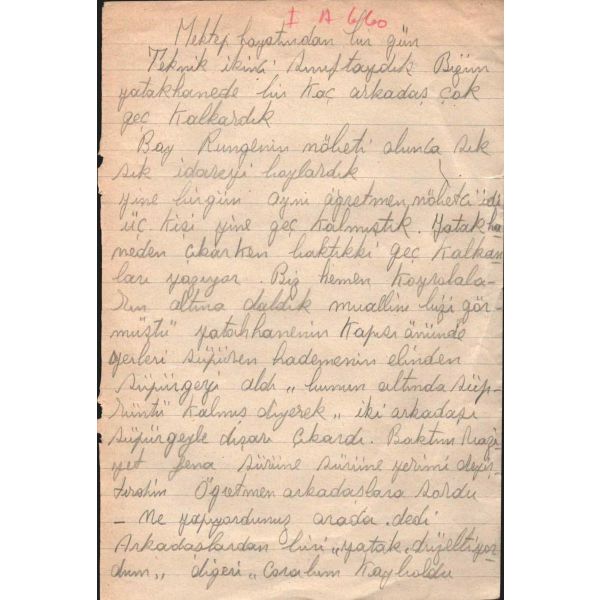 I A 660
Mektep hayatından bir gün
Teknik ikinci sınıftaydık Bizim
yatakhanede bir kaç arkadaş çok
geç kalkardık
Bay Rungenin nöbeti olunca sık
sık idareyi boylardık
yine birgün aynı öğretmen nöbetci idi
üç kişi yine geç kalmıştık. Yatakha
neden çıkarken baktıkki geç kalkan
ları yazıyor Biz hemen karyolala-
rın altına daldık muallim bizi gör-
müştü yatakhanenin kapısı önünde
yerleri süpüren hademenin elinden
süpürgeyi aldı „ bunun altında süp-
rüntü kalmış diyerek „ iki arkadaşı
süpürgeyle dışarı çıkardı. Baktım vazi-
yet fena sürüne sürüne yerimi değiş-
tirdim Öğretmen arkadaşlara sordu
- Ne yapıyordunuz orada. dedi
Arkadaşlardan biri „ yatak düzeltiyor-
dum „ diğeri „ çorabım kayboldu